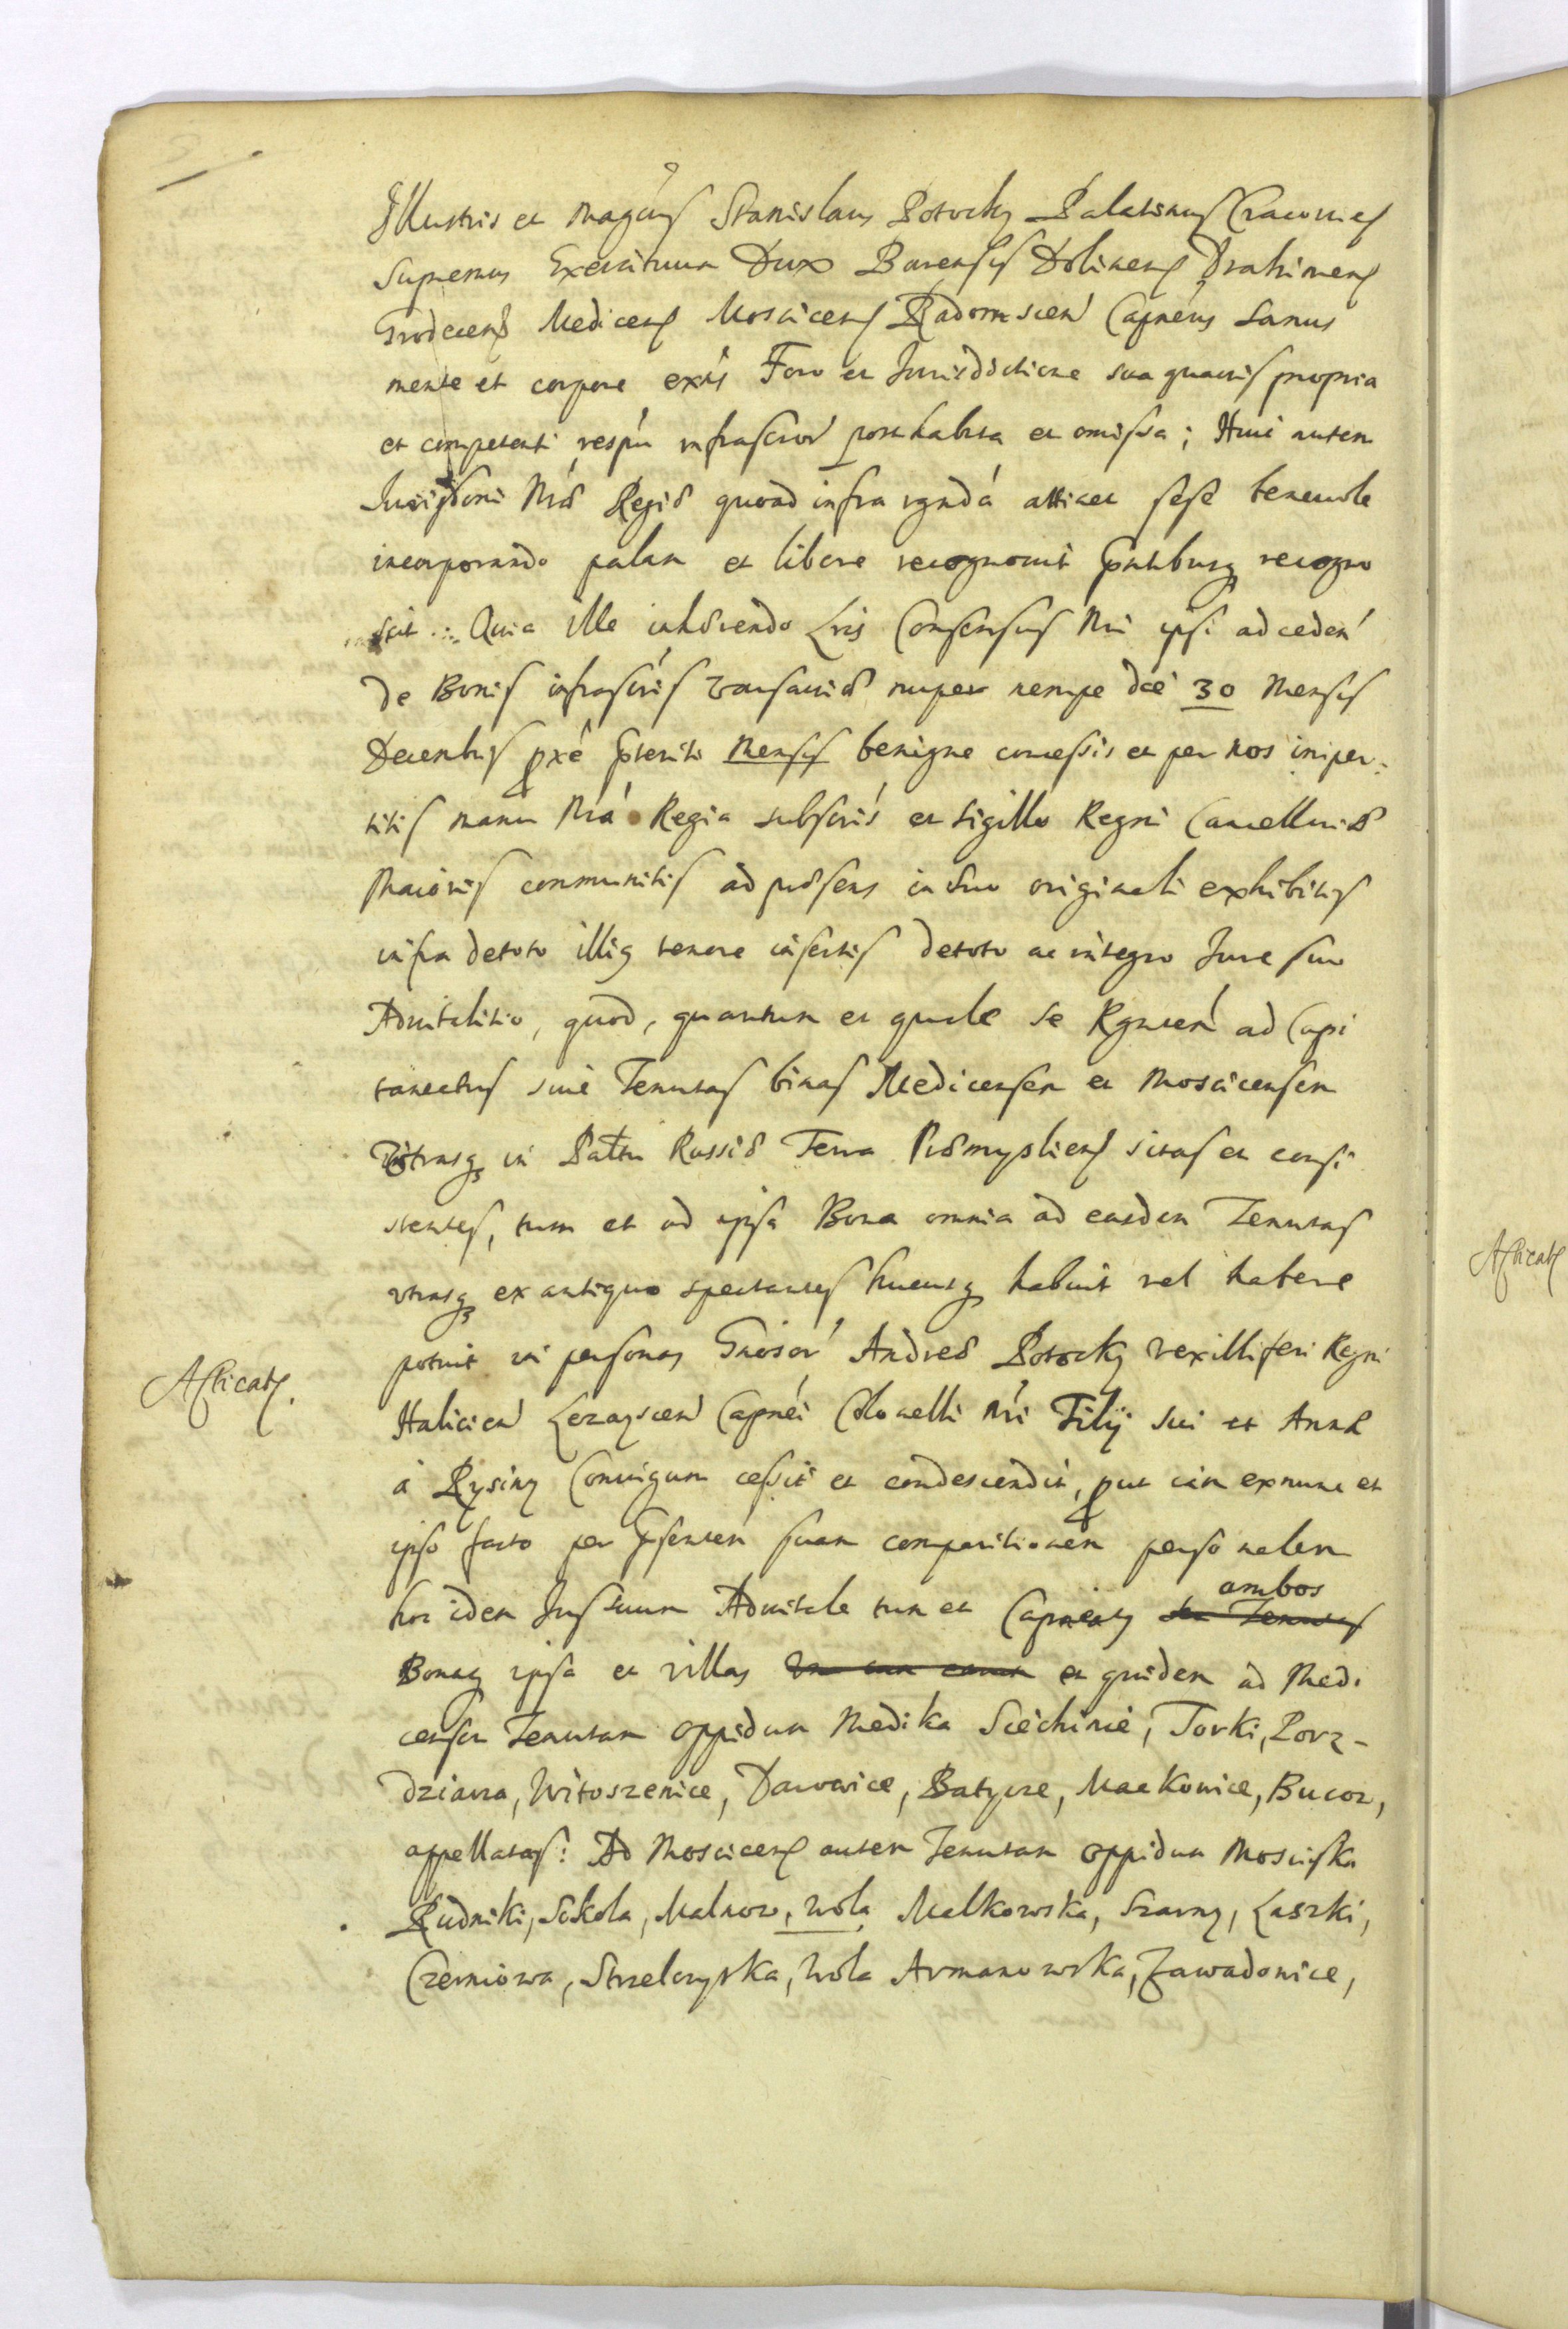 Illustris et Mag͠cus Stanislaus Potocky Palatinus Cracouien̄
Supremus Exercituum Dux Barensis Dolinen̄ Drahimen̄
Grodecen̄ Medicen̄ Moscicen̄ Radomscen̄ Capn̄eus Sanus
mente et corpore exn̄s Foro et Jurisdictione sua quauis propria
et competenti resp̄u infrascror̄ posthabita et omissa; Huic autem
Jurisdōni Nr̄æ Regiæ quoad infra rgndā attinet sese beneuole
incorporando palam et libere recognouit p̄ntibusq́ recogno
scit. Quia ille inhærendo Lris Consensus Nri ipsi ad ceden̄
de Bonis infrascris Varsauiæ nuper nempe die 30 Mensis
Decembris pxē p̄teriti Mensis benigne concessis et per nos imper-
titis manu Nrā Regia subscris et Sigillo Regni Cancellariæ
Maioris communitis ad præsens in suo originali exhibitis
infra de toto illiq tenore insertis de toto ac integro Jure suo
Aduitalitio, quod, quantum et quale se rgnten̄ ad Capi
taneatus siue Tenutas binas Medicensem et Moscicensem
Vtrasq́ in Palttu Russiæ Terra Præmyslien̄ sitas et consi
stentes, tum et ad ipsa Bona omnia ad easdem Tenutas
vtrasq́ ex antiquo spectantes hucusq́ habuit vel habere
potuit in personas Gnosor̄ Andreæ Potocky Vexilliferi Regni
Halicien̄ Lezayscen̄ Capn̄ei Colonelli Nri Filij sui et Annæ
à Rysiny Coniugum cessit et condescendit, put iam exnunc et
ipso facto per p̄senten̄ suam comparitionem personalem
hoc idem Jus suum Aduitale tum et Capn̄eaty seu Tenutas ambos
Bonaq́ ipsa et villas et quidem ad Medi
censem Tenutam oppidum Medika Siechinie, Torki, Porz-
dziarza, Witoszenice, Darowice, Batycze, Mackowice, Bucow,
appellatas: Ad Moscicen̄ autem Tenutam Oppidum Mosciska
Rudniki, Sokola, Malnow, Wola Malkowska, Szarny, Laszki,
Czerniowa, Strzelczyska, Wola Armanowska, Zawadowice,